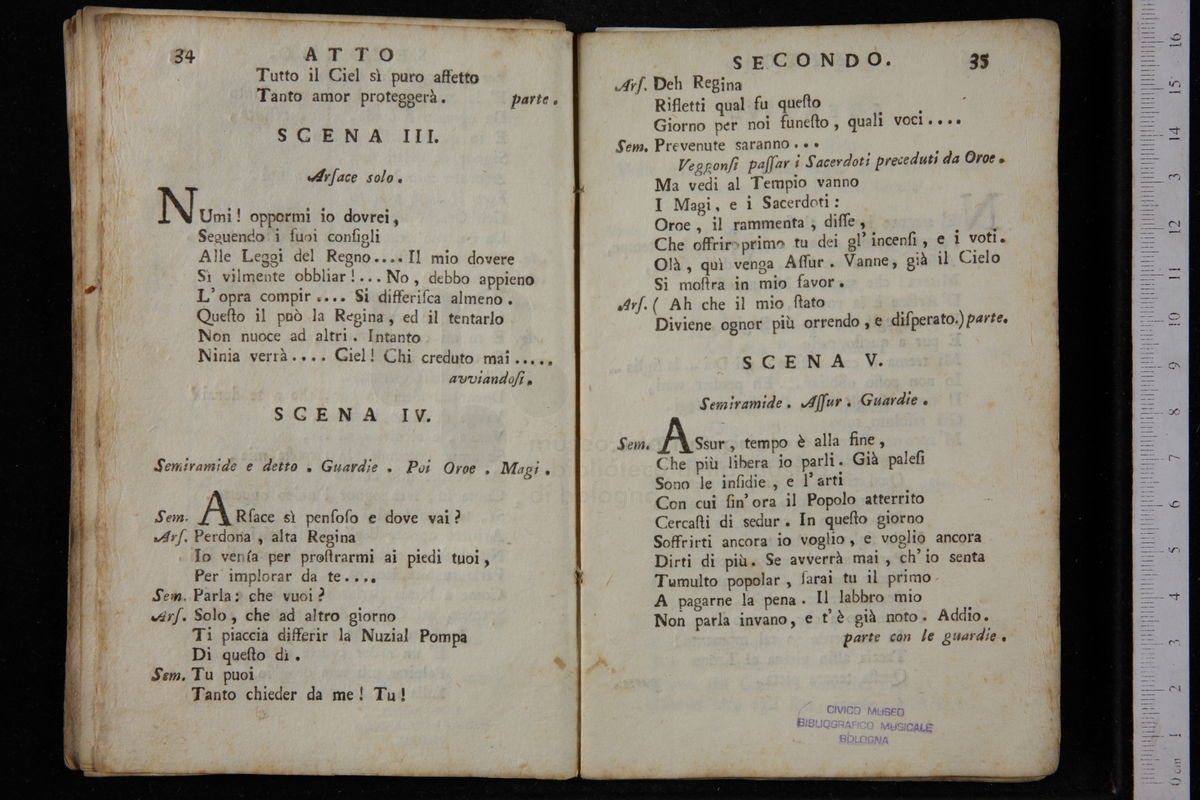 34 ATTO
Tutto il Ciel sì puro affetto
Tanto amor proteggerà. parte.
SCENA III.
Arſace solo.
NUmi! oppormi io dovrei,
Seguendo i ſuoi conſigli
Alle Leggi del Regno.... Il mio dovere
Sì vilmente obbliar!... No, debbo appieno
L'opra compir .... Si differiſca almeno.
Queſto il può la Regina, ed il tentarlo
Non nuoce ad altri. Intanto
Ninia verrà.... Ciel! Chi creduto mai.....
avviandoſi.
SCENA IV.
Semiramide e detto. Guardie. Poi Oroe. Magi.
Sem. ARſace sì penſoſo e dove vai?
Arſ. Perdona, alta Regina
Io venía per proſtrarmi ai piedi tuoi,
Per implorar da te....
Sem. Parla: che vuoi?
Arſ. Solo, che ad altro giorno
Ti piaccia differir la Nuzial Pompa
Di queſto dì.
Sem. Tu puoi
Tanto chieder da me! Tu!
SECONDO. 35
Arſ. Deh Regina
Rifletti qual fu queſto
Giorno per noi funeſto, quali voci....
Sem. Prevenute saranno...
Veggonſi paſſar i Sacerdoti preceduti da Oroe.
Ma vedi al Tempio vanno
I Magi, e i Sacerdoti:
Oroe, il rammenta, diſſe,
Che offrir primo tu dei gl'incenſi, e i voti.
Olà, quì venga Aſſur. Vanne, già il Cielo
Si moſtra in mio favor.
Arſ. (Ah che il mio ſtato
Diviene ognor più orrendo, e diſperato.) parte.
SCENA V.
Semiramide. Aſſur. Guardie.
Sem. ASsur, tempo è alla fine,
Che più libera io parli. Già paleſi
Sono le inſidie, e l'arti
Con cui ſin'ora il Popolo atterrito
Cercaſti di sedur. In queſto giorno
Soffrirti ancora io voglio, e voglio ancora
Dirti di più. Se avverrà mai, ch'io senta
Tumulto popolar, ſarai tu il primo
A pagarne la pena. Il labbro mio
Non parla invano, e t'è già noto. Addio.
parte con le guardie.
CIVICO MUSEO
BIBLIOGRAFICO MUSICALE
BOLOGNA